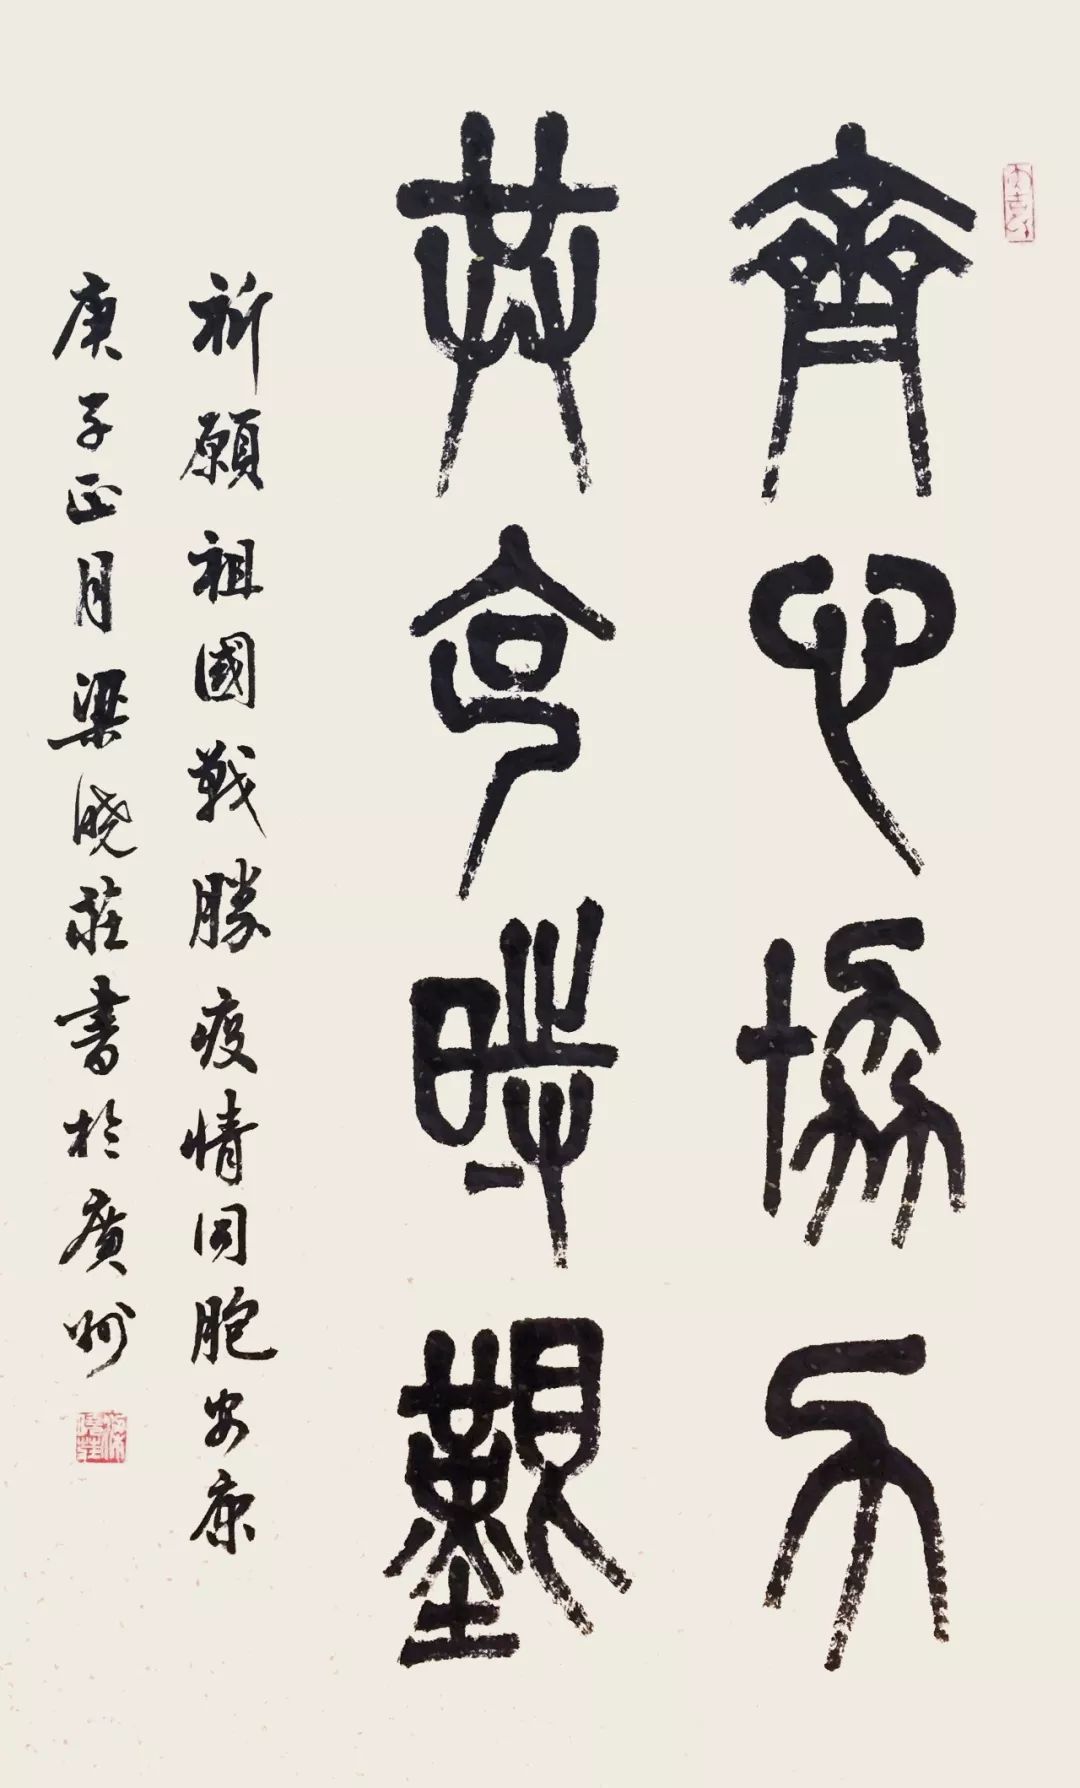 齊心協力
共克時艱
祈願祖國戰勝疫情同胞安康
庚子正月梁曉莊書於廣州